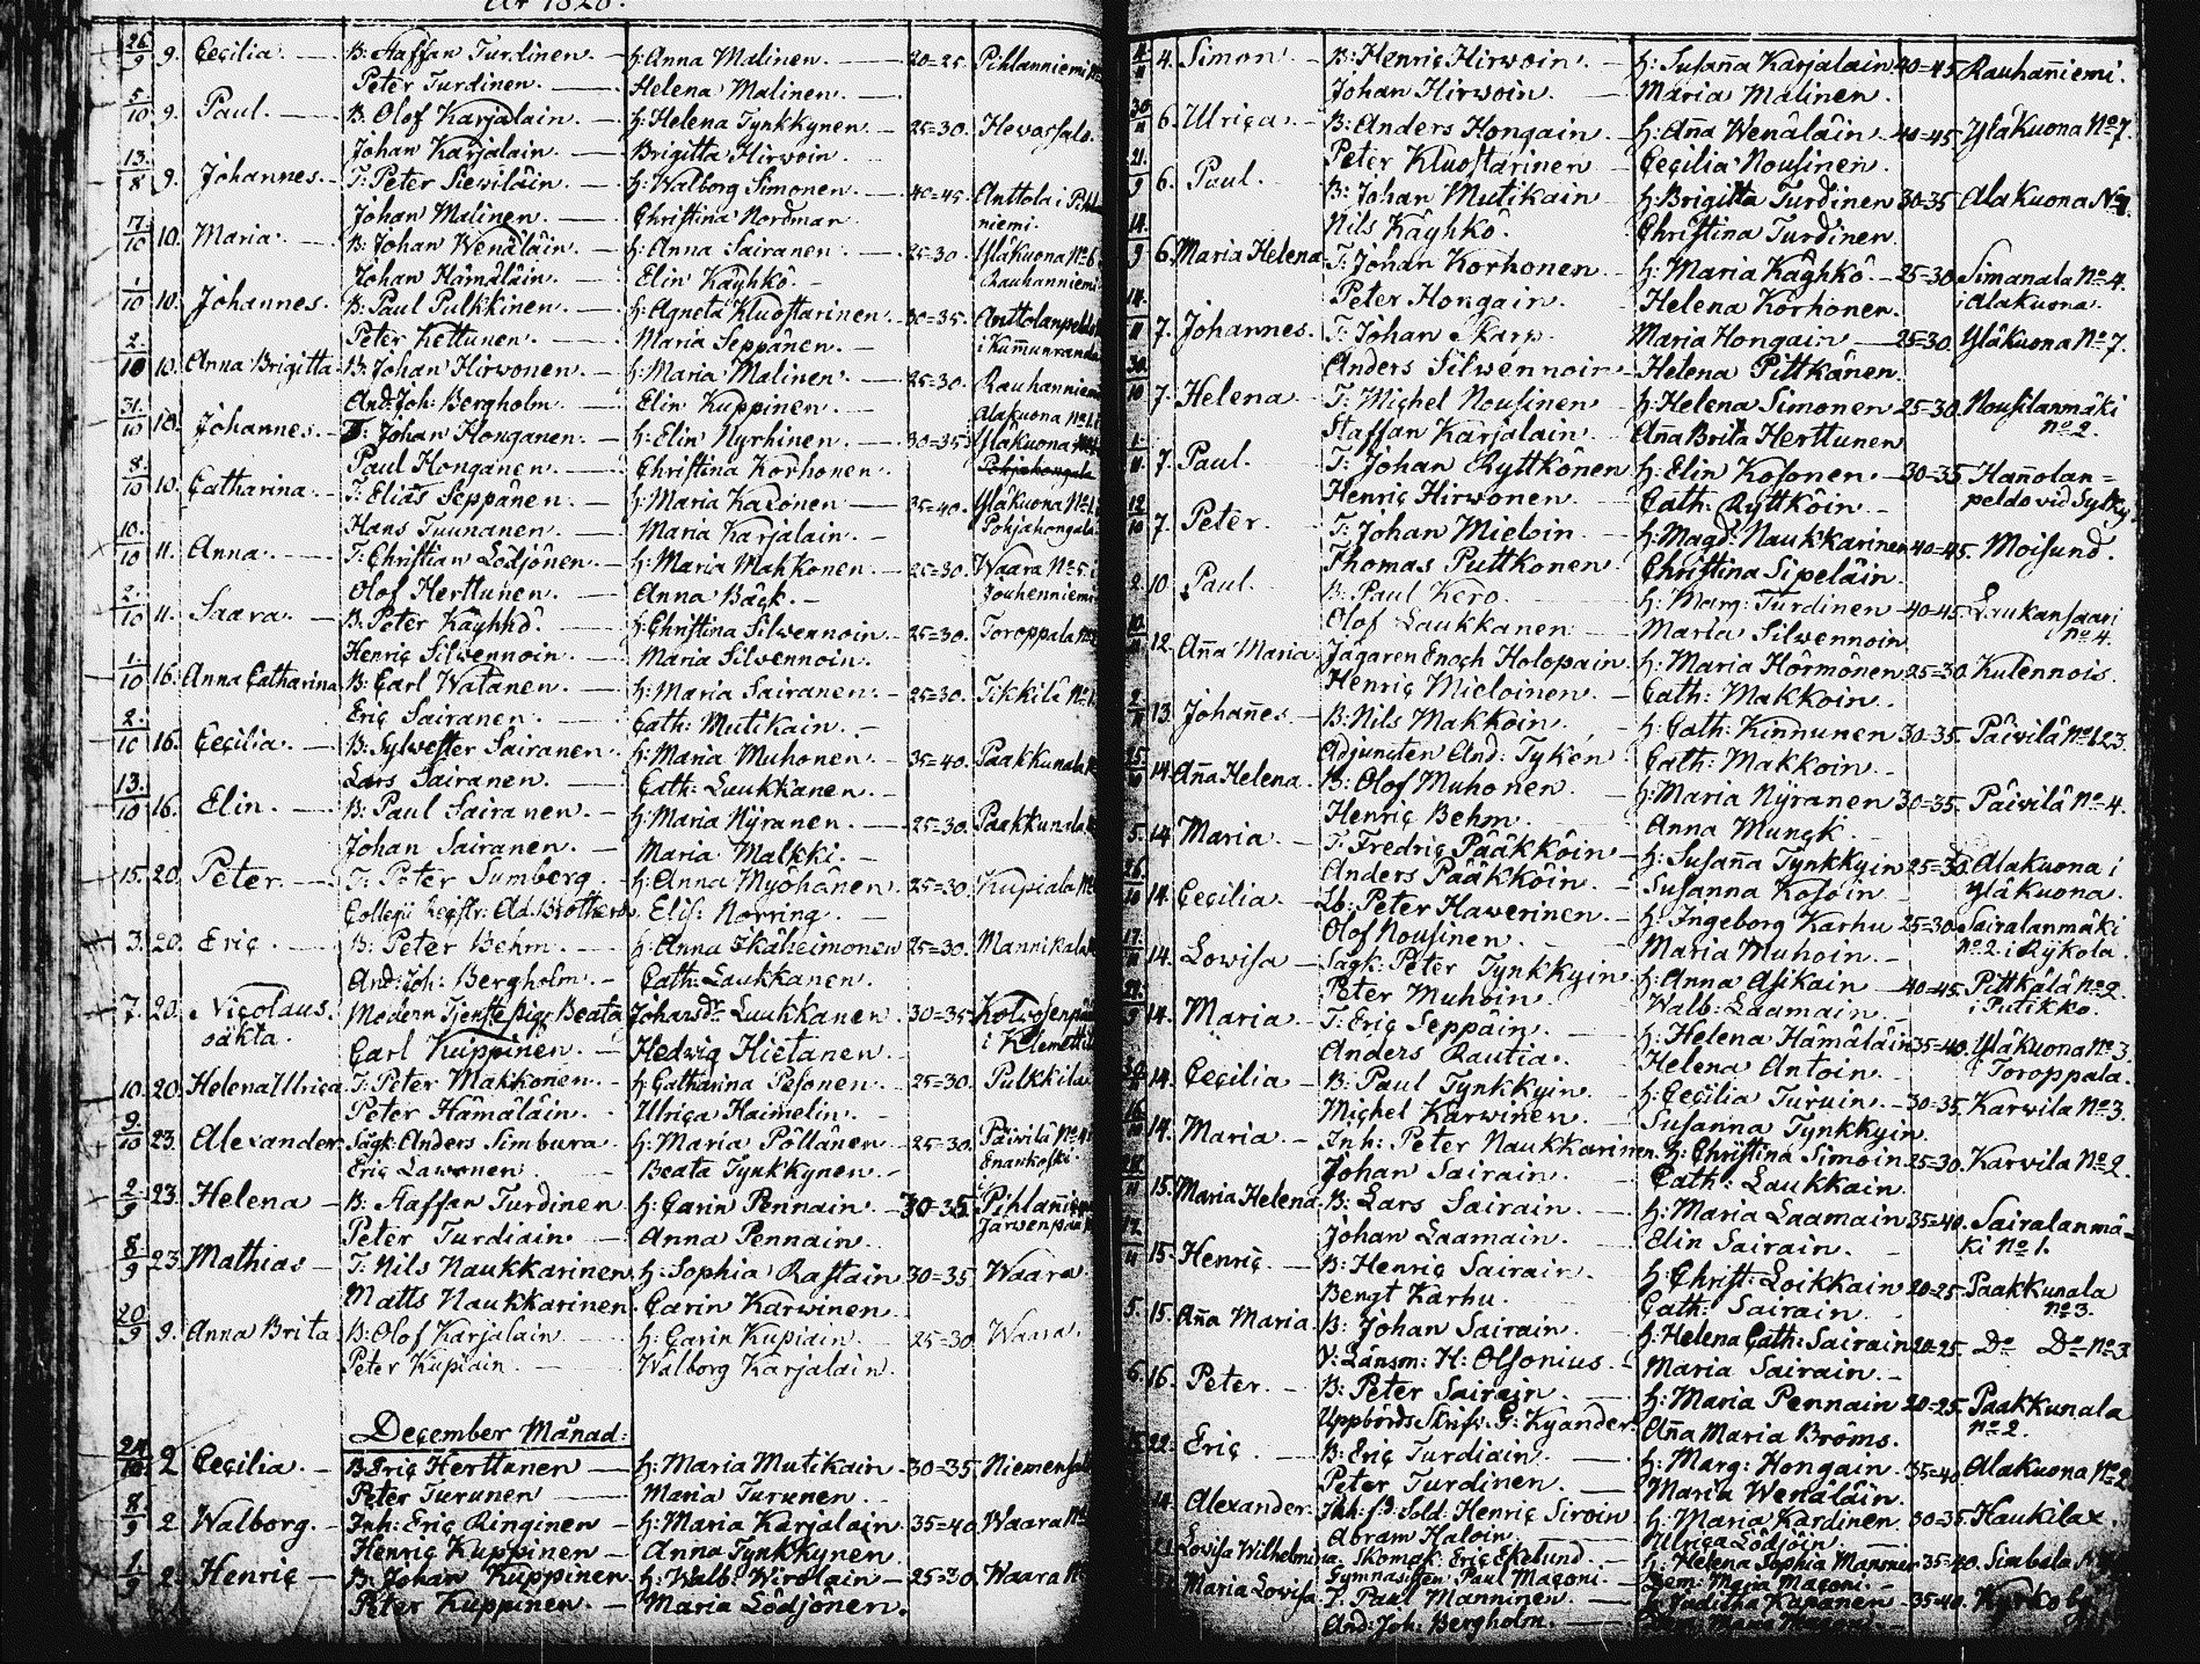 År 1828.
26/9 9. Cecilia. B: Staffan Turdinen. h: Anna Malinen. 20=25. Pihlanniemi
Peter Turdinen. Helena Malinen.
5/10 9. Paul. B. Olof Karjalain. h: Helena Tynkkynen 25=30. Hevossalo.
Johan Karjalain. Brigitta Hirvoin.
13./8 9. Johannes. T: Peter Siewiläin. h: Walborg Simonen. 40=45. Anttola i Pihla
Johan Malinen. Christina Nordman niemi.
17/10 10. Maria. B: Johan Wenäläin. h: Anna Sairanen. 25=30. Yläkuona No 6
Johan Hämäläin. Elin Käyhkö. Rauhanniemi
1/10 10. Johannes. B: Paul Pulkkinen. h: Agneta Kluostarinen. 30=35. Anttolanpeldo
Peter Kettunen. Maria Seppänen. i Kummunranda
2./10 10. Anna Brigitta B: Johan Hirvonen. h: Maria Malinen. 25=30. Rauhanniemi
And: Joh: Bergholm. Elin Kuppinen. Alakuona No 1.
31./10 10. Johannes. T: Johan Honganen. h: Elin Nyrhinen. 30=35. Yläkuona
Paul Honganen. Christina Korhonen. Pohjahongala
8./10 10. Catharina. T: Elias Seppänen. h: Maria Kasonen 35=40. Yläkuona No 1.
Hans Tuunanen. Maria Karjalain. Pohjahongala
10./10 11. Anna. T: Christian Lödjönen. h: Maria Mahkonen. 25=30. Waara No 5.
Olof Herttunen. Anna Bäck. Jouhenniemi
2./10 11. Saara. B: Peter Käyhkö. h: Christina Silvennoin. 25=30. Toroppala
Henric Silvennoin. Maria Silvennoin.
1./10 16. Anna Catharina B: Carl Watanen. h: Maria Sairanen. 25=30. Tikkilä No 1.
Eric Sairanen. Cath: Mutikain.
2./10 16. Cecilia. B: Sylvester Sairanen. h: Maria Muhonen. 35=40. Paakkunala
Lars Sairanen. Cath: Luukkanen.
13./10 16. Elin. B: Paul Sairanen. h: Maria Nyranen. 25=30. Paakkunala
Johan Sairanen. Maria Malkki.
15. 20 Peter. T: Peter Sumberg. h: Anna Myöhänen. 25=30. Kupiala
Collegii Regstr: Ad. Brotherus. Elis: Norring.
3. 20. Eric. B: Peter Behm. h: Anna Ikäheimonen 25=30. Mannikala
And: Joh: Bergholm. Cath: Laukkanen.
7. 20. Nicolaus. Modern Tjenstepig: Beata Johansdr Luukkanen. 30=35. Kolvosenpää
oäkta. Carl Kuippinen. Hedwig Hietanen. i Klemetti
10. 20. Helena Ulrica. T: Peter Makkonen. h: Catharina Pesonen. 25=30. Pulkkila
Peter Hämäläin. Ulrica Haimelin.
9./10 23. Alexander. Sågk: Anders Simbura. h: Maria Pöllänen. 25=30. Päivilä No 4
Eric Lavonen. Beata Tynkkynen. Enankoski.
2./9 23. Helena B: Staffan Turdinen h: Carin Pennain. 30=35 Pihlanniemi
Peter Turdiain. Anna Pennain. Järvenpää
8./9 23. Mathias T: Nils Naukkarinen. h: Sophia Rastain 30=35 Waara
Matts Naukkarinen. Carin Karwinen.
20/9 9. Anna Brita B: Olof Karjalain h: Carin Kupiain. 25=30 Waara.
Peter Kupiain. Walborg Karjalain.
December Månad:
24/10 2 Cecilia. B: Eric Herttunen h: Maria Mutikain 30=35 Niemensalo
Peter Turunen Maria Turunen.
8./9 2 Walborg. Inh: Eric Ringinen h: Maria Karjalain. 35=40 Waara No
Henric Kuppinen Anna Tynkkynen
1./9 2 Henric B: Johan Kuppinen h: Walb: Wirolain 25=30. Waara
Peter Kuppinen. Maria Lödjönen.
4./11 4. Simon. B: Henric Hirvoin. h: Susanna Karjalain 40=45 Rauhanniemi.
Johan Hirvoin. Maria Malinen.
30/11 6. Ulrica. B: Anders Hongain. h: Anna Wenäläin 40=45 Yläkuona No 7.
Peter Kluostarinen Cecilia Nousinen.
21./9 6. Paul. B: Johan Mutikain h: Brigitta Turdinen 30=35 Alakuona No 1.
Nils Käyhkö. Christina Turdinen.
14./9 6 Maria Helena T: Johan Korhonen h: Maria Käyhkö. 25=30 Simanala No 4.
Peter Hongain. Helena Korhonen. i Alakuona.
14./11 7. Johannes. T: Johan Skarp. Maria Hongain 25=30. Yläkuona No 7.
Anders Silvennoin Helena Pittkänen.
30./10 7. Helena T: Michel Nousinen h: Helena Simonen 25=30. Nousilanmäki
Staffan Karjalain. Anna Brita Herttunen No 2.
1./11. 7. Paul. T: Johan Ryttkönen h: Elin Kosonen. 30=35 Hannolan=
Henric Hirvonen Cath: Ryttköin. peldo vid Sylky
12/10 7. Peter. T: Johan Mieloin. h: Magd: Naukkarinen 40=45. Moisund.
Thomas Puttkonen Christina Sipeläin.
2. 10 Paul. B: Paul Kero. h: Marg: Turdinen 40=45. Laukansaari
Olof Laukkanen Maria Silvennoin No 4.
10./11 12. Anna Maria Jägaren Enoch Holopain. h: Maria Hörmönen 25=30 Kulennois.
Henric Mieloinen. Cath: Makkoin.
2/11 13. Johannes. B: Nils Makkoin. h: Cath: Kinnunen 30=35. Päivilä No 123.
Adjuncten And: Tykén Cath: Makkoin.
25./10 14. Anna Helena. B: Olof Muhonen. h: Maria Nyranen 30=35. Päivilä No 4.
Henric Behm. Anna Munck.
5. 14 Maria. T: Fredric Pääkköin h: Susanna Tynkkyin 25=30. Alakuona i
Anders Pääkköin. Susanna Kosoin Yläkuona.
26./10 14. Cecilia. Lb: Peter Hawerinen. h: Ingeborg Karhu 25=30 Sairalanmäki
Olof Nousinen. Maria Muhoin. No 2. i Rykola.
17./11 14. Lovisa Sågk: Peter Tynkkyin h: Anna Asikain 40=45. Pittkälä No 2.
Peter Muhoin. Walb: Laamain. i Putikko.
14. Maria. T: Eric Seppäin. h: Helena Hämäläin 35=40. Yläkuona No 3.
Anders Rautia. Helena Antoin. i Toroppala.
14. Cecilia B: Paul Tynkkyin. h: Cecilia Turuin. 30=35. Karvila No 3.
Michel Karwinen. Susanna Tynkkyin.
14. Maria. Inh: Peter Naukkarinen. h: Christina Simoin 25=30. Karvila No 2
Johan Sairain. Cath: Laukkain.
15. Maria Helena B: Lars Sairain. h: Maria Laamain 35=40. Sairalanmä-
Johan Laamain. Elin Sairain. ki No 1.
17./11 15. Henric. B: Henric Sairain. h: Christ: Loikkain 20=25. Paakkunala
Bengt Karhu. Cath: Sairain. No 3.
5. 15. Anna Maria. B: Johan Sairain. h: Helena Cath: Sairain 20=25. Do Do No 3
V: Länsm: H: Olsonius. Maria Sairain.
6. 16. Peter. B: Peter Sairain. h: Maria Pennain 20=25. Paakkunala
Uppbörds Skrifv. G: Kyander. Anna Maria Broms. No 2.
22. Eric B: Eric Turdiain. h: Marg: Hongain. 35=40. Alakuona No 2
Peter Turdinen. Maria Wenäläin.
Alexander. Inh: fd: Sold: Henric Siroin h: Maria Kardinen. 30=35. Haukilax.
Abram Haloin. Ulrica Lödjöin.
Lovisa Wilhelmina. Skomak: Eric Ekelund. h: Helena Sophia 35=40. Simbala
Gymnasisten Paul Maconi. Dem: Maria Maconi.
Maria Lovisa T. Paul Manninen. h: Juditha Kapanen 35=40. Kyrkoby
And: Joh: Bergholm.